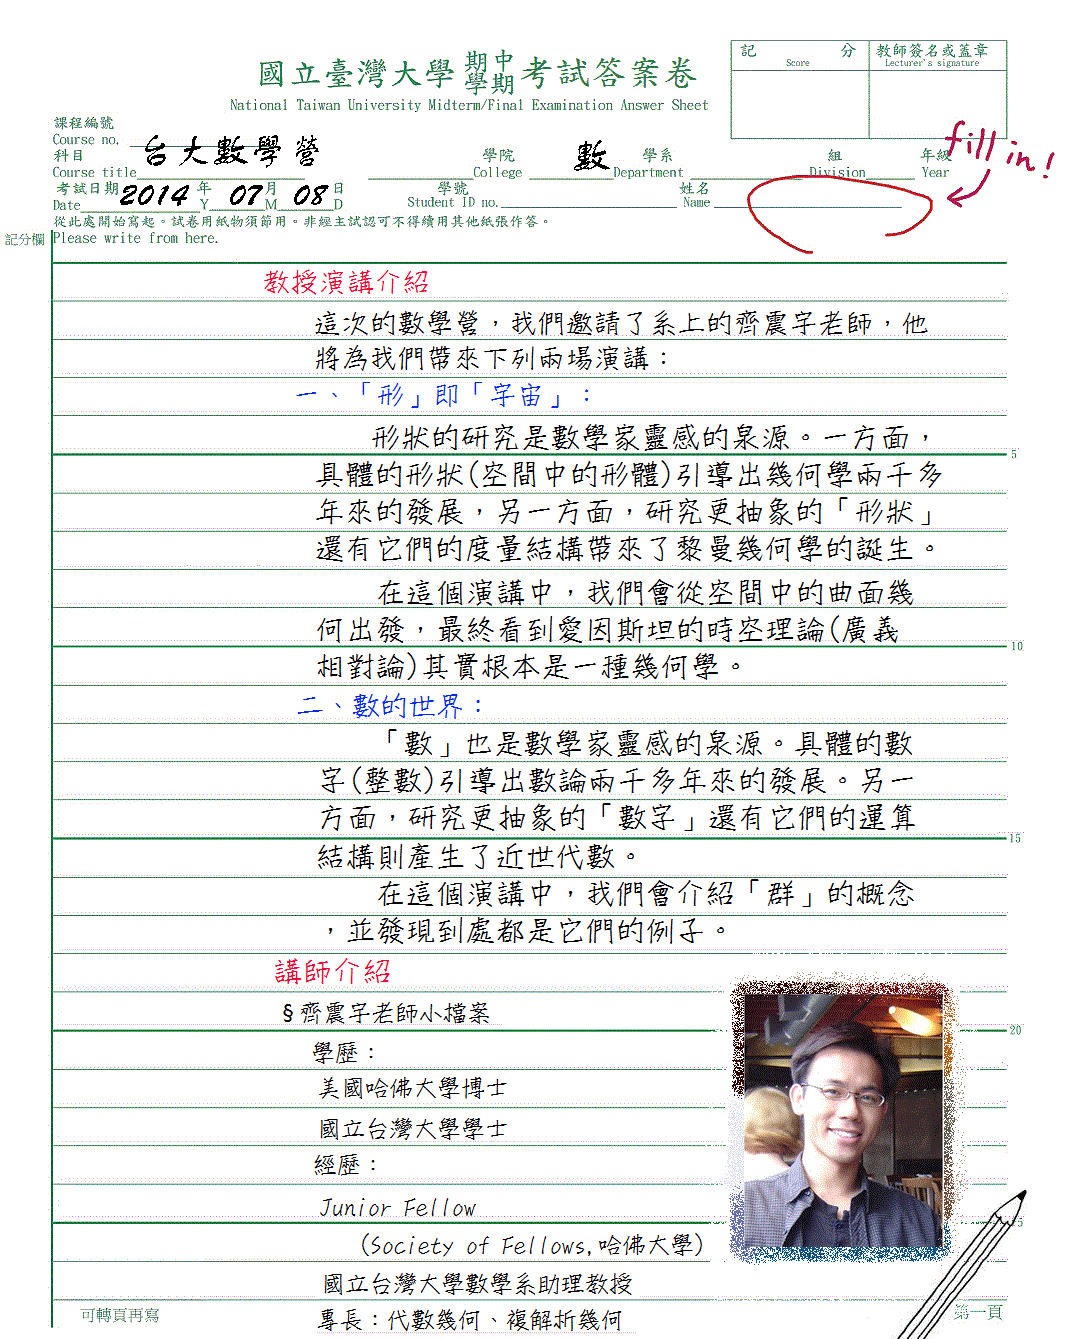 記 分 教師簽名或蓋章
Score Lecturer's signature
國立臺灣大學 期中 學期 考試答案卷
National Taiwan University Midterm/Final Examination Answer Sheet
課程編號
Course no.
台大數學營
科目 學院 數 學系 組 年級
Course title College Department Division Year
fill in!
考試日期 2014 年 07 月 08 日 學號 姓名
Date Y M D Student ID no. Name
從此處開始寫起。試卷用紙物須節用。非經主試認可不得續用其他紙張作答。
記分欄 Please write from here.
教授演講介紹
這次的數學營，我們邀請了系上的齊震宇老師，他
將為我們帶來下列兩場演講：
一、「形」即「宇宙」：
形狀的研究是數學家靈感的泉源。一方面，
5
具體的形狀(空間中的形體)引導出幾何學兩千多
年來的發展，另一方面，研究更抽象的「形狀」
還有它們的度量結構帶來了黎曼幾何學的誕生。
在這個演講中，我們會從空間中的曲面幾
何出發，最終看到愛因斯坦的時空理論(廣義
10
相對論)其實根本是一種幾何學。
二、數的世界：
「數」也是數學家靈感的泉源。具體的數
字(整數)引導出數論兩千多年來的發展。另一
方面，研究更抽象的「數字」還有它們的運算
15
結構則產生了近世代數。
在這個演講中，我們會介紹「群」的概念
，並發現到處都是它們的例子。
講師介紹
§齊震宇老師小檔案
20
學歷：
美國哈佛大學博士
國立台灣大學學士
經歷：
Junior Fellow
(Society of Fellows,哈佛大學)
國立台灣大學數學系助理教授
專長：代數幾何、複解析幾何
可轉頁再寫 第一頁